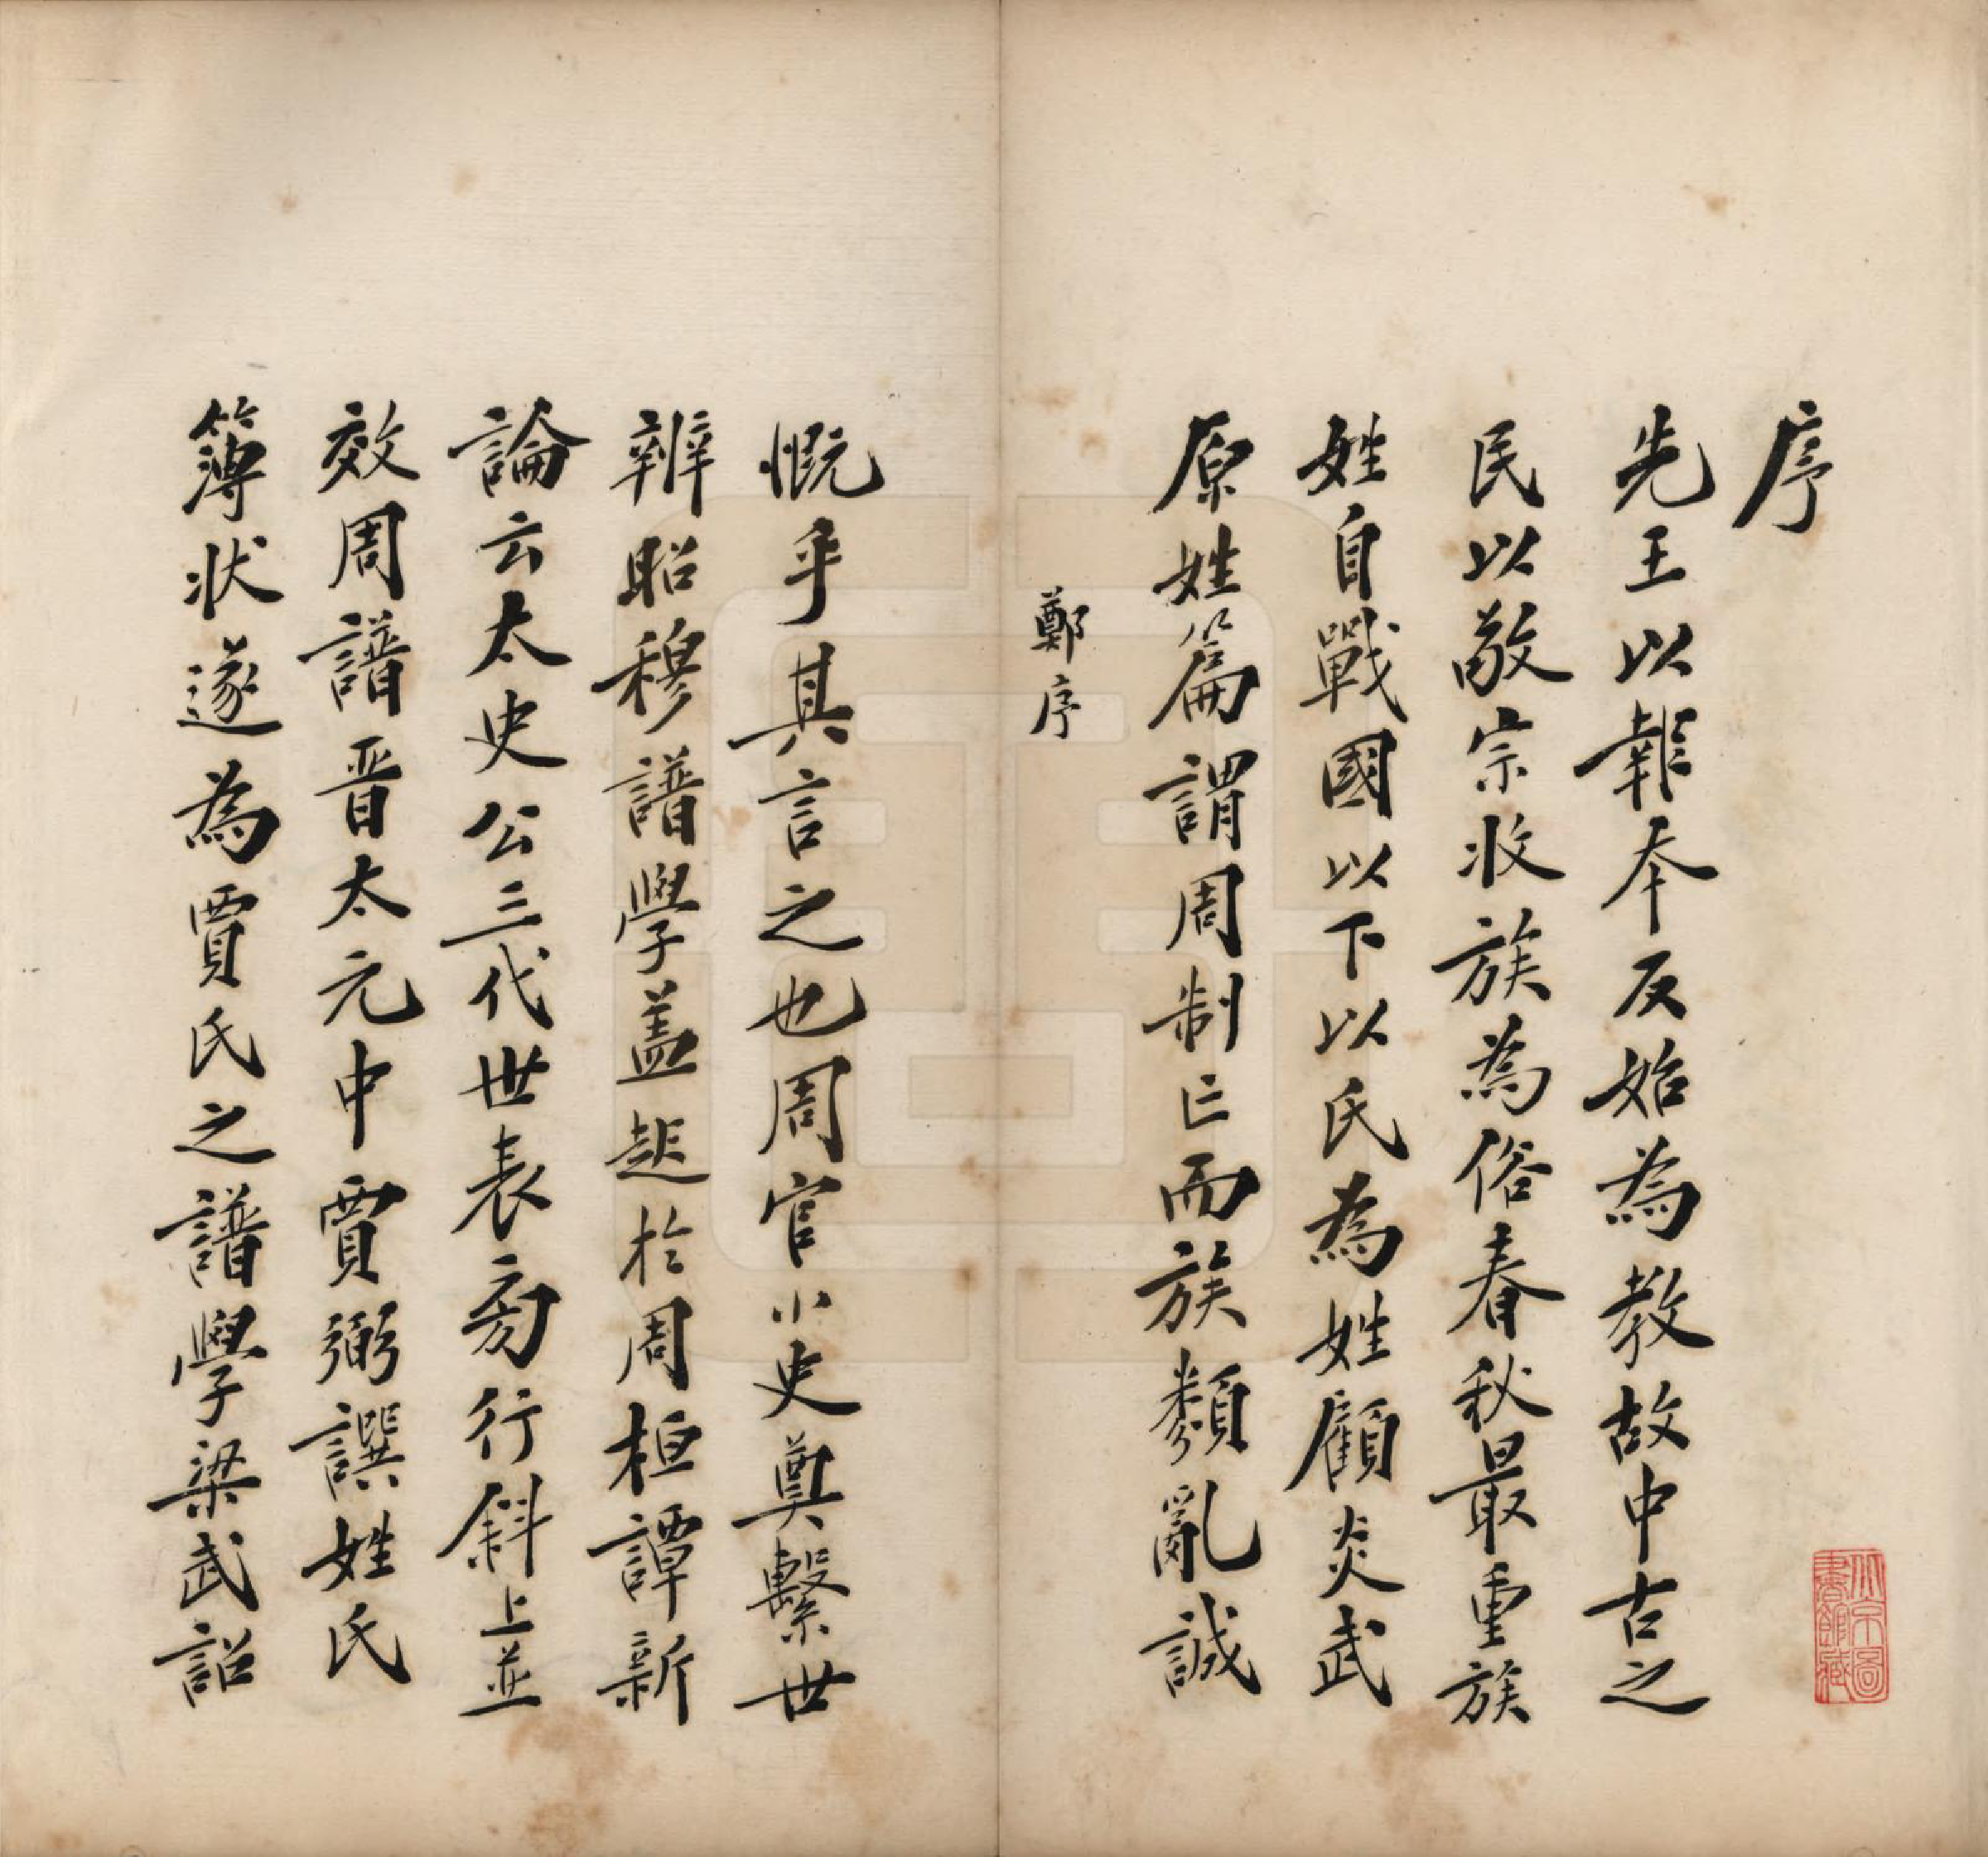 序
先王以報本反始為教故中古之
民以敬宗收族為俗春秋最重族
姓自戰國以下以氏為姓顧炎武
原姓篇謂周制亡而族類亂誠
鄭序
慨乎其言之也周官小史奠繫世
辨昭穆譜學蓋起於周桓譚新
論云太史公三代世表旁行斜上並
效周譜晉太元中賈弼譔姓氏
簿狀遂為賈氏之譜學梁武詔
北京圖書館藏